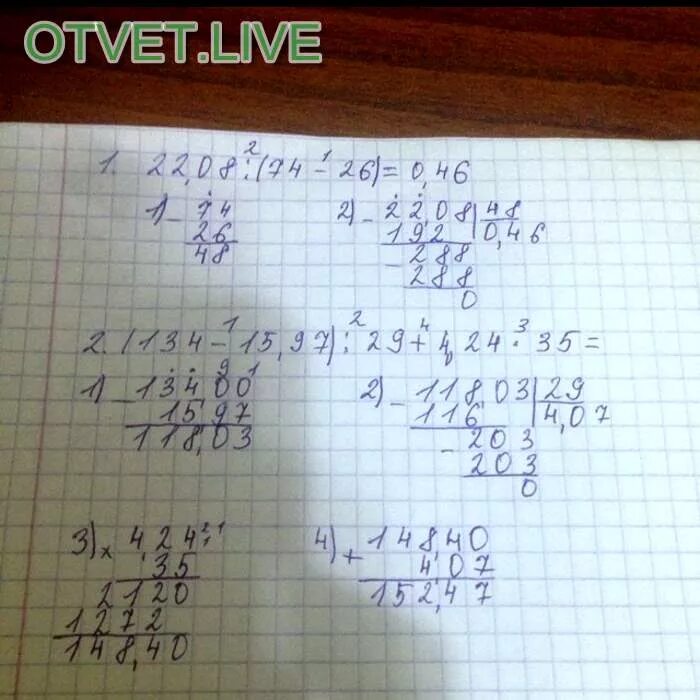 OTVET.LIVE
1. 22,08 : (74 - 26) = 0,46
2 1
1) - 74
26
48
2) - 22,08 | 48
192 0,46
- 288
288
0
2. (134 - 15,97) : 29 + 4,24 · 35 =
1 2 4 3
1) - 134,00
9 1
15,97
118,03
2) - 118,03 | 29
116 4,07
- 203
203
0
3) × 4,24
2 1
35
2120
1272
148,40
4) + 148,40
4,07
152,47